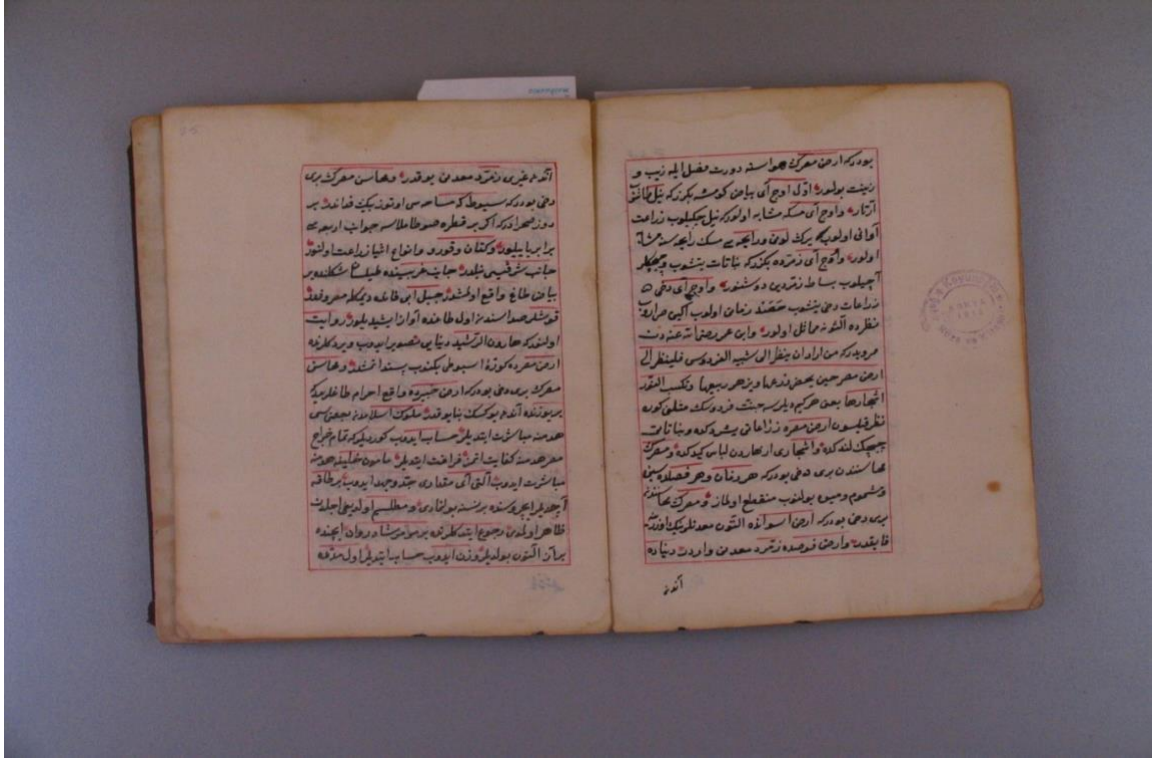 بودركه ارض مصرك هواسنه دورت فصل ايله زيب و
زينت بولور اول اوچ آى بياض كومشه بكزركه نيل طاشوب
آرتار واوچ آى مسكه مشابه اولوركه نيل چكيلوب زراعت
آوانى اولوب يرك لونى ورايحه سى مسك رايحه سنه مشابه
اولور واوچ آى زمرده بكزركه نباتات يتشوب وچيچكلر
آچيلوب بساط زمردين دوشنور واوچ آى دخى
زراعات دخى يتشوب حصد زمانى اولوب اكين صراروب
منظرده آلتونه مماثل اولور وابن عمر رضى الله عنه دن
مرويدركه من اراد ان ينظر الى شبيه الفردوس فلينظر الى
ارض مصر حين يخضر زرعها ويزهر ربيعها وتكسب النور
اشجارها يعنى هركيم ديلرسه جنت فردوسك مثلنى كوره
نظر قيلسون ارض مصره زراعاتى يشردكده ونباتاتى
چيچكلندكده واشجارى ازهاردن لباس كيدكده ومصرك
محاسنندن برى دخى بودركه هر زمان وهر فصلده
ومشموم وميوه بولنوب منقطع اولماز ومصرك محاسنندن
برى دخى بودركه ارض اسوانده التون معدنلرينك اوزرينه
فايقدر وارض قوصده زمرد معدنى واردر دنياده
آندن
آندن غيرى زمرد معدنى يوقدر ومحاسن مصرك برى
دخى بودركه سيوط كه مساحه سى اوتوز بيك فداندر بر
دوز صحرادركه اكر بر قطره صو طاملاسه جوانب اربعه سى
برابر ياييلور وكتان وقور و وانواع اشيا زراعت اولنور
جانب شرقيسى نيلدر جانب غربيسنده طيلسان شكلنده بر
بياض طاغ واقع اولمشدر جبل ابى فائده ديمكله معروفدر
قوشلر صداسندن اول طاغده آواز ايشيديلور روايت
اولندكه هارون الرشيد دنيايى تصوير ايدوب ويردكلرنده
ارض مصرده كورة اسيوطى بكنوب پسند اتمشدر ومحاسن
مصرك برى دخى بودركه ارض جيزه ده واقع اهرام طاغلريدر
يريوزنده آندن يوكسك بنا يوقدر ملوك اسلامدن بعضيسى
هدمنه مباشرت ايتديلر حساب ايدوب كورديلركه تمام خراج
مصر هدمنه كفايت اتمز فراغت ايتديلر مامون خليفه هدمه
مباشرت ايدوب آلتى آى مقدارى جد وجهد ايدوب بر طاقه
آچديلر ايچروسنده بر نسنه بولمادى ومطلسم اولديغى اجلدن
ظاهر اولمدن رجوع ايتدكلرنده بر مرمر شادروان ايچنده
بر آز التون بولديلر وزن ايدوب حساب ايتديلر اول